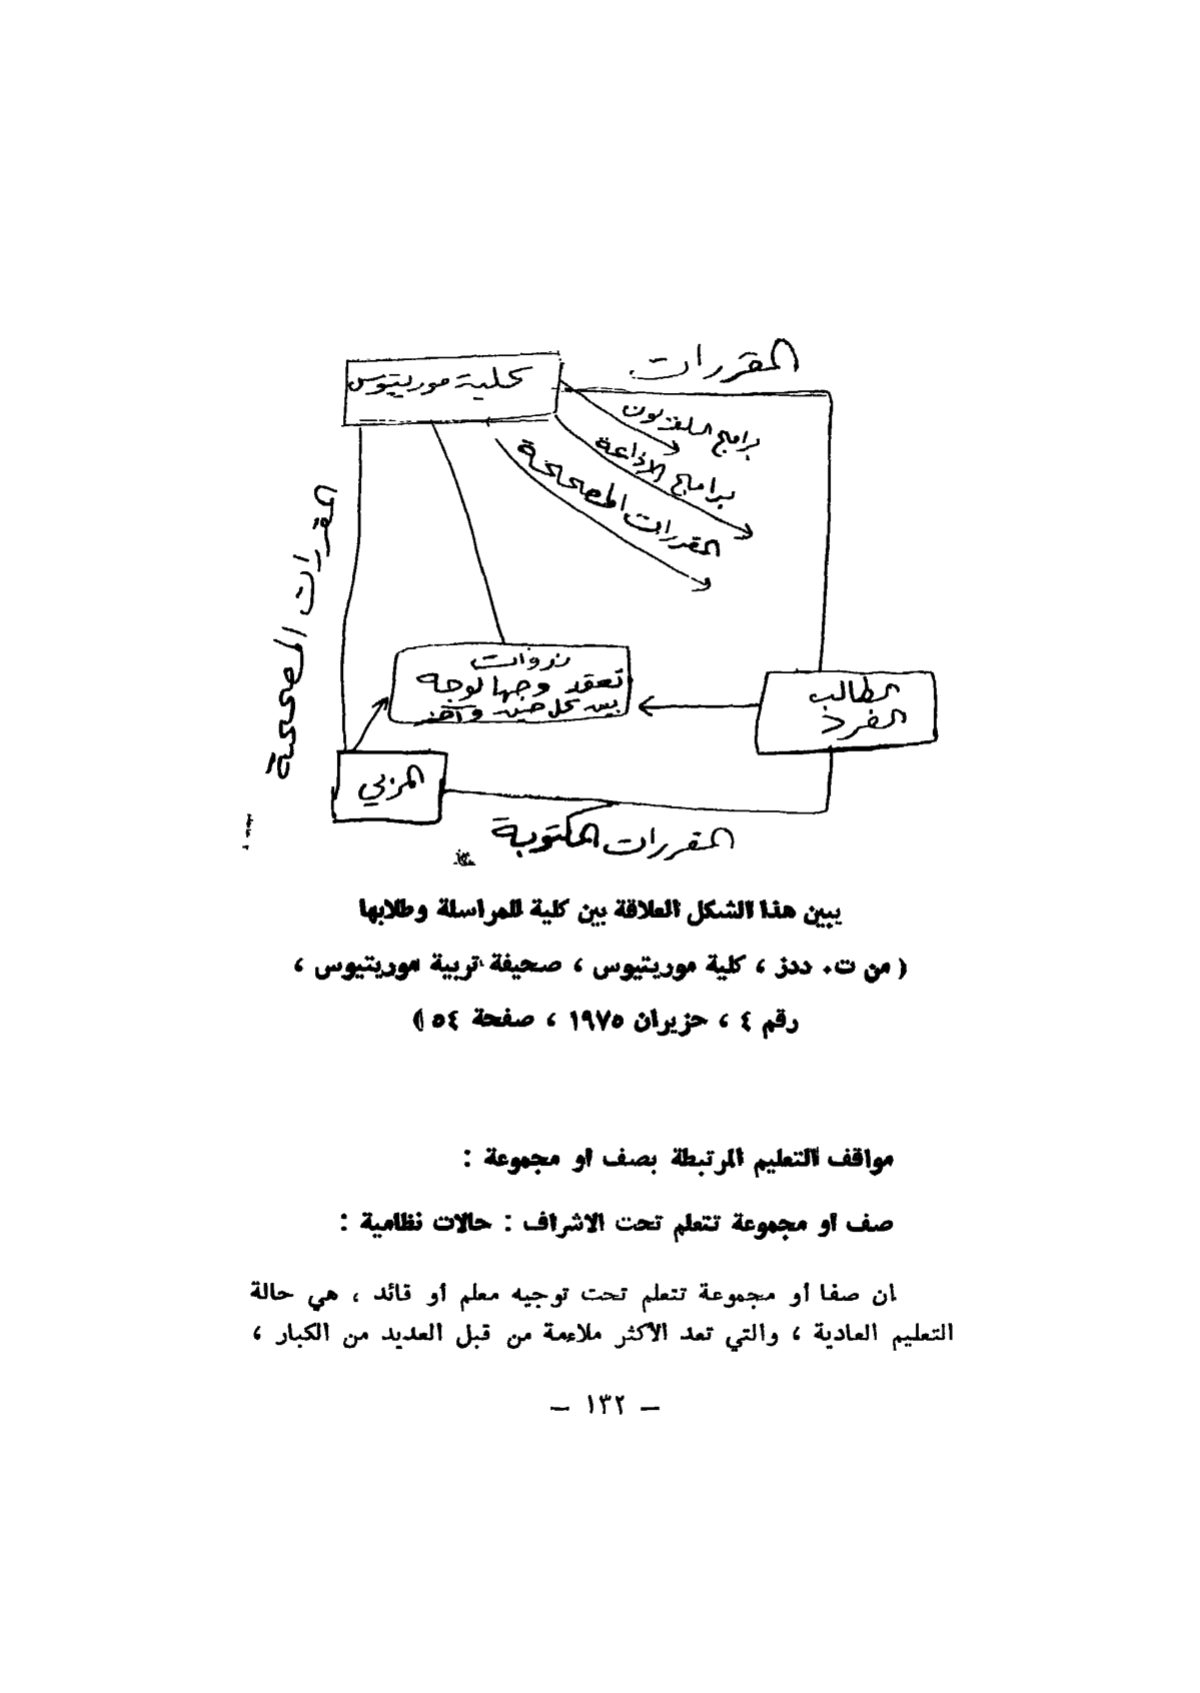 المقررات
كلية موريتيوس
برامج التلفزيون
برامج الاذاعة
المقررات المصححة
المقررات المصححة
ندوات
تعقد وجها لوجه
بين كل حين وآخر
الطالب
الفرد
المربي
المقررات المكتوبة
يبين هذا الشكل العلاقة بين كلية للمراسلة وطلابها
( من ت. ددز ، كلية موريتيوس ، صحيفة تربية موريتيوس ،
رقم ٤ ، حزيران ١٩٧٥ ، صفحة ٥٤ )
مواقف التعليم المرتبطة بصف او مجموعة :
صف او مجموعة تتعلم تحت الاشراف : حالات نظامية :
ان صفا أو مجموعة تتعلم تحت توجيه معلم أو قائد ، هي حالة
التعليم العادية ، والتي تعد الأكثر ملاءمة من قبل العديد من الكبار ،
— ١٣٢ —